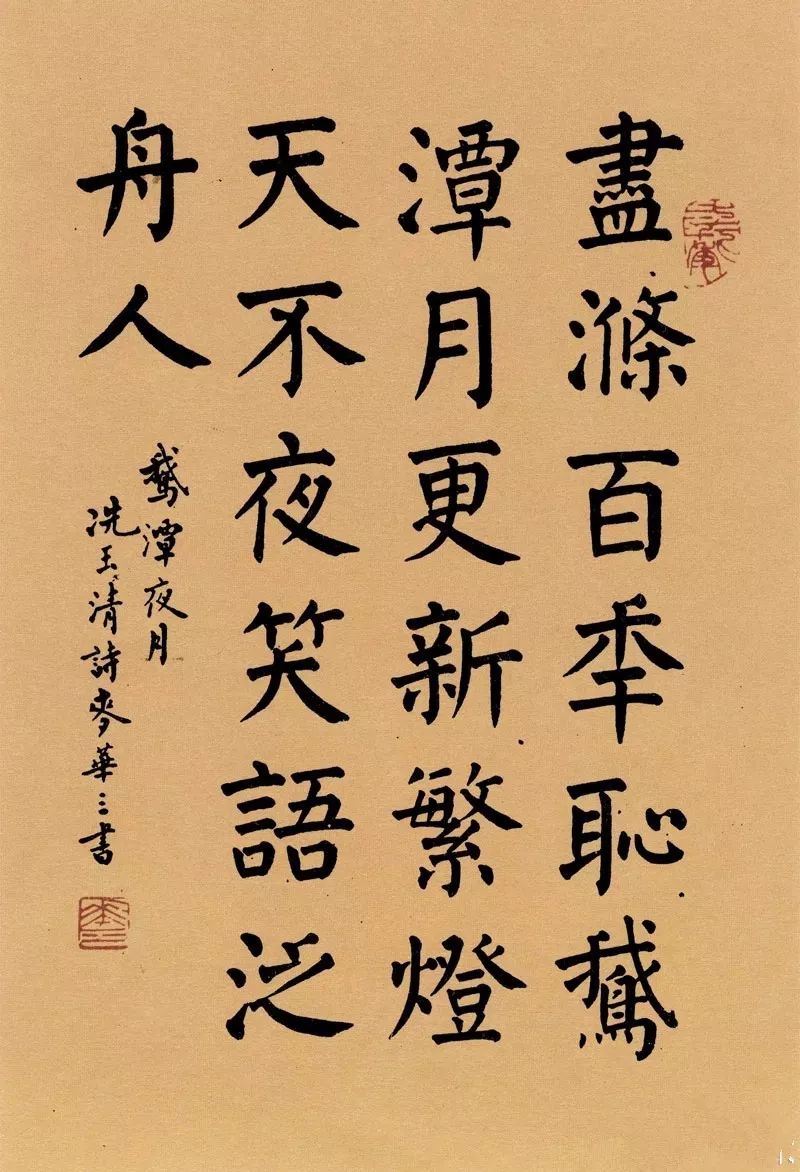 盡滌百秊恥鵝
潭月更新繁燈
天不夜笑語泛
舟人
鵝潭夜月
冼玉清詩麥華三書